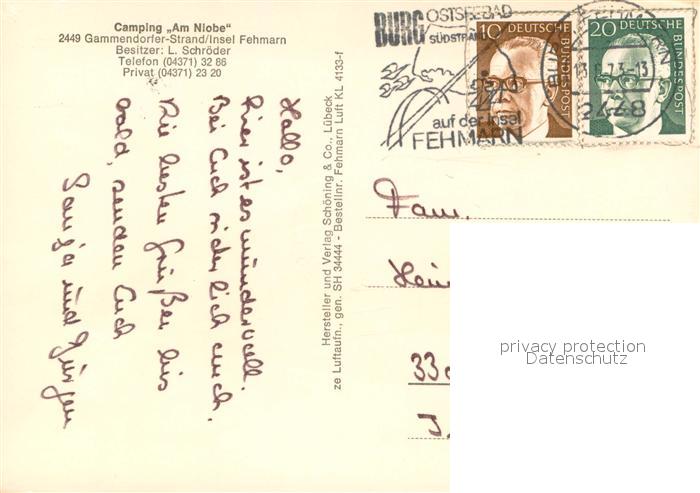 Camping „Am Niobe“
2449 Gammendorfer-Strand/Insel Fehmarn
Besitzer: L. Schröder
Telefon (04371) 32 86
Privat (04371) 23 20
Hallo,
hier ist es wundervoll.
Bei Euch sicherlich auch.
Die besten Grüße bis
bald, senden Euch
Sonja und Jürgen
Hersteller und Verlag Schöning & Co., Lübeck
ze Luftaufn., gen. SH 34444 - Bestellnr. Fehmarn Luft KL 4133-f
BURG OSTSEEBAD
SÜDSTRAND
auf der Insel
FEHMARN
10 DEUTSCHE
BUNDESPOST
20 DEUTSCHE
BUNDESPOST
2448
Fam.
33
privacy protection
Datenschutz